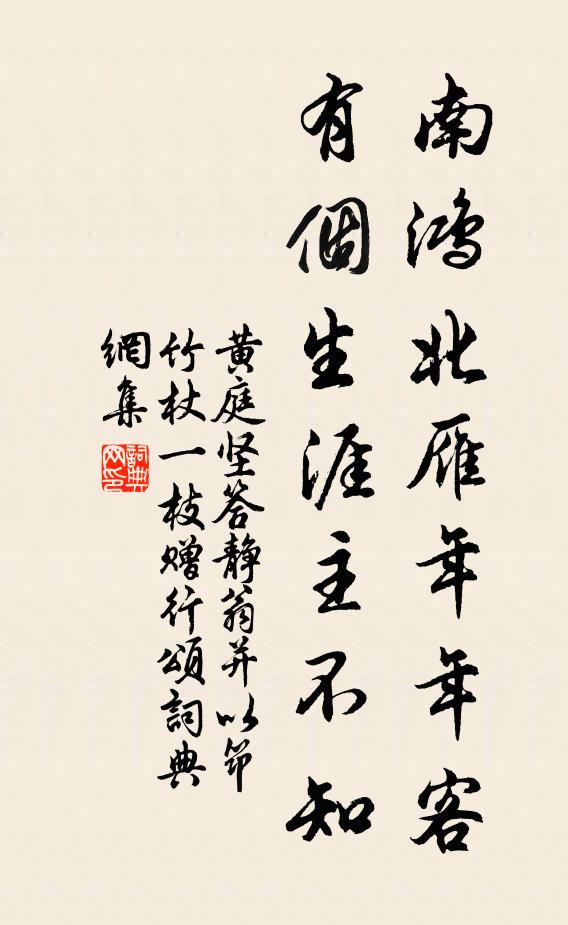 南鸿北雁年年客
有個生涯主不知
黄庭坚答静翁并以筇
竹杖一枝赠行頌詞典
網集
詞典网印